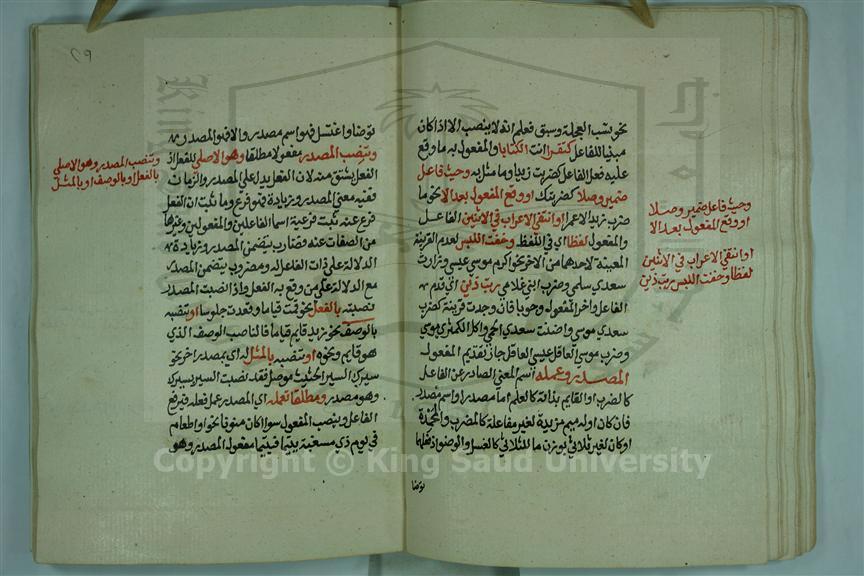 نحو نشب العجلة وسبق فعلم انه لا ينصب الا اذا كان
مبنيا للفاعل كتقرا انت الكتابا والمفعول به ما وقع
عليه فعل الفاعل كضربت زيدا وما مثل به وحيث فاعل
ضمير وصلا كضربتك او وقع المفعول بعد الا نحو ما
ضرب زيد الا عمرا او انتفى الاعراب في الاثنين الفاعل
والمفعول لفظا اي في اللفظ وخفت اللبس لعدم القرينة
المعينة لاحدهما من الاخر نحو اكرم موسى عيسى وزارت
سعدى سلمى وضرب ابني غلامي رتب ذين اي قدم
الفاعل واخر المفعول وجوبا فان وجدت قرينة كضرب
سعدى موسى واضنت سعدى الحمى واكل الكمثرى موسى
وضرب موسى العاقل عيسى العاقل جاز تقديم المفعول
المصدر وعمله اسم المعنى الصادر عن الفاعل
كالضرب او القايم بذاته كالعلم اما مصدر او اسم مصدر
فان كان اوله ميم مزيدة لغير مفاعلة كالمضرب والمحمدة
او كان لغير ثلاثي بوزن ما للثلاثي كالغسل والوضوء اذ فعلهما
توضا
وحيث فاعل ضمير وصلا
او وقع المفعول بعد الا
او انتفى الاعراب في الاثنين
لفظا وخفت اللبس رتب ذين
توضا واغتسل فهو اسم مصدر والا فهو المصدر
وتنصب المصدر مفعولا مطلقا وهو الاصلي للفعل اذ
الفعل يشتق منه لان الفعل يدل على المصدر والزمان
ففيه معنى المصدر وزيادة فهو فرع وما ثبت ان الفعل
فرع عنه ثبت فرعية اسما الفاعلين والمفعولين وغيرها
من الصفات عنه وضارب يتضمن المصدر وزيادة
الدلالة على ذات الفاعل له ومضروب يتضمن المصدر
مع الدلالة على من وقع به الفعل واذا نصبت المصدر
نصبته بالفعل نحو قمت قياما وقعدت جلوسا او تنصبه
بالوصف نحو زيد قايم قياما فالناصب الوصف الذي
هو قايم ونحوه او تنصبه بالمثل له اي بمصدر اخر نحو
سيرك السير الحثيث موصل فقد نصبت السير بسيرك
وهو مصدر ومطلقا تعمله اي المصدر عمل فعله فيرفع
الفاعل وينصب المفعول سوا كان منونا نحو او اطعام
في يوم ذي مسغبة يتيما فيتيما مفعول المصدر وهو
وتنصب المصدر وهو الاصلي
بالفعل او بالوصف او بالمثل
Copyright © King Saud University